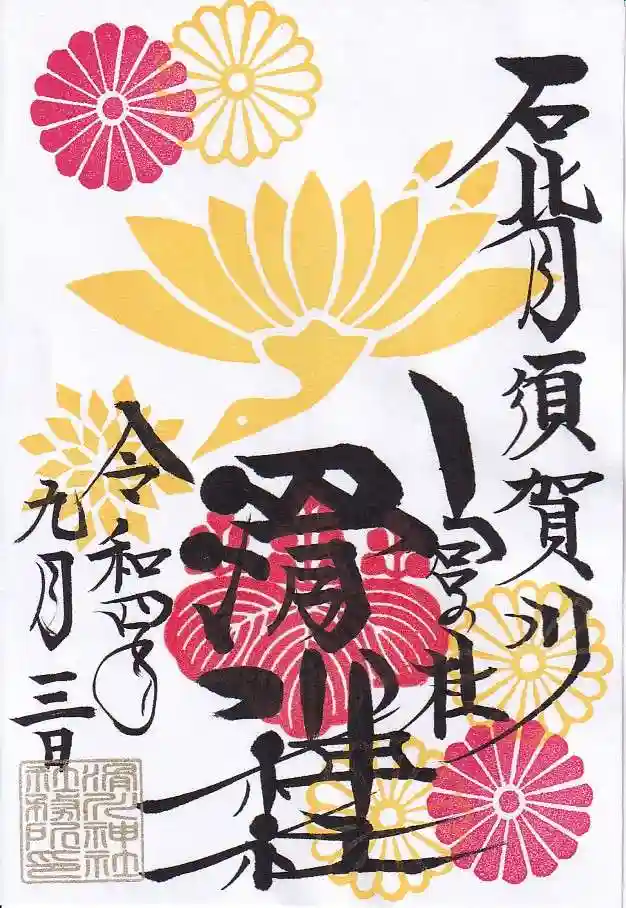 石背 須賀川
宮の杜
滑川神社
令和四年
九月三日
滑川神社
社務所印